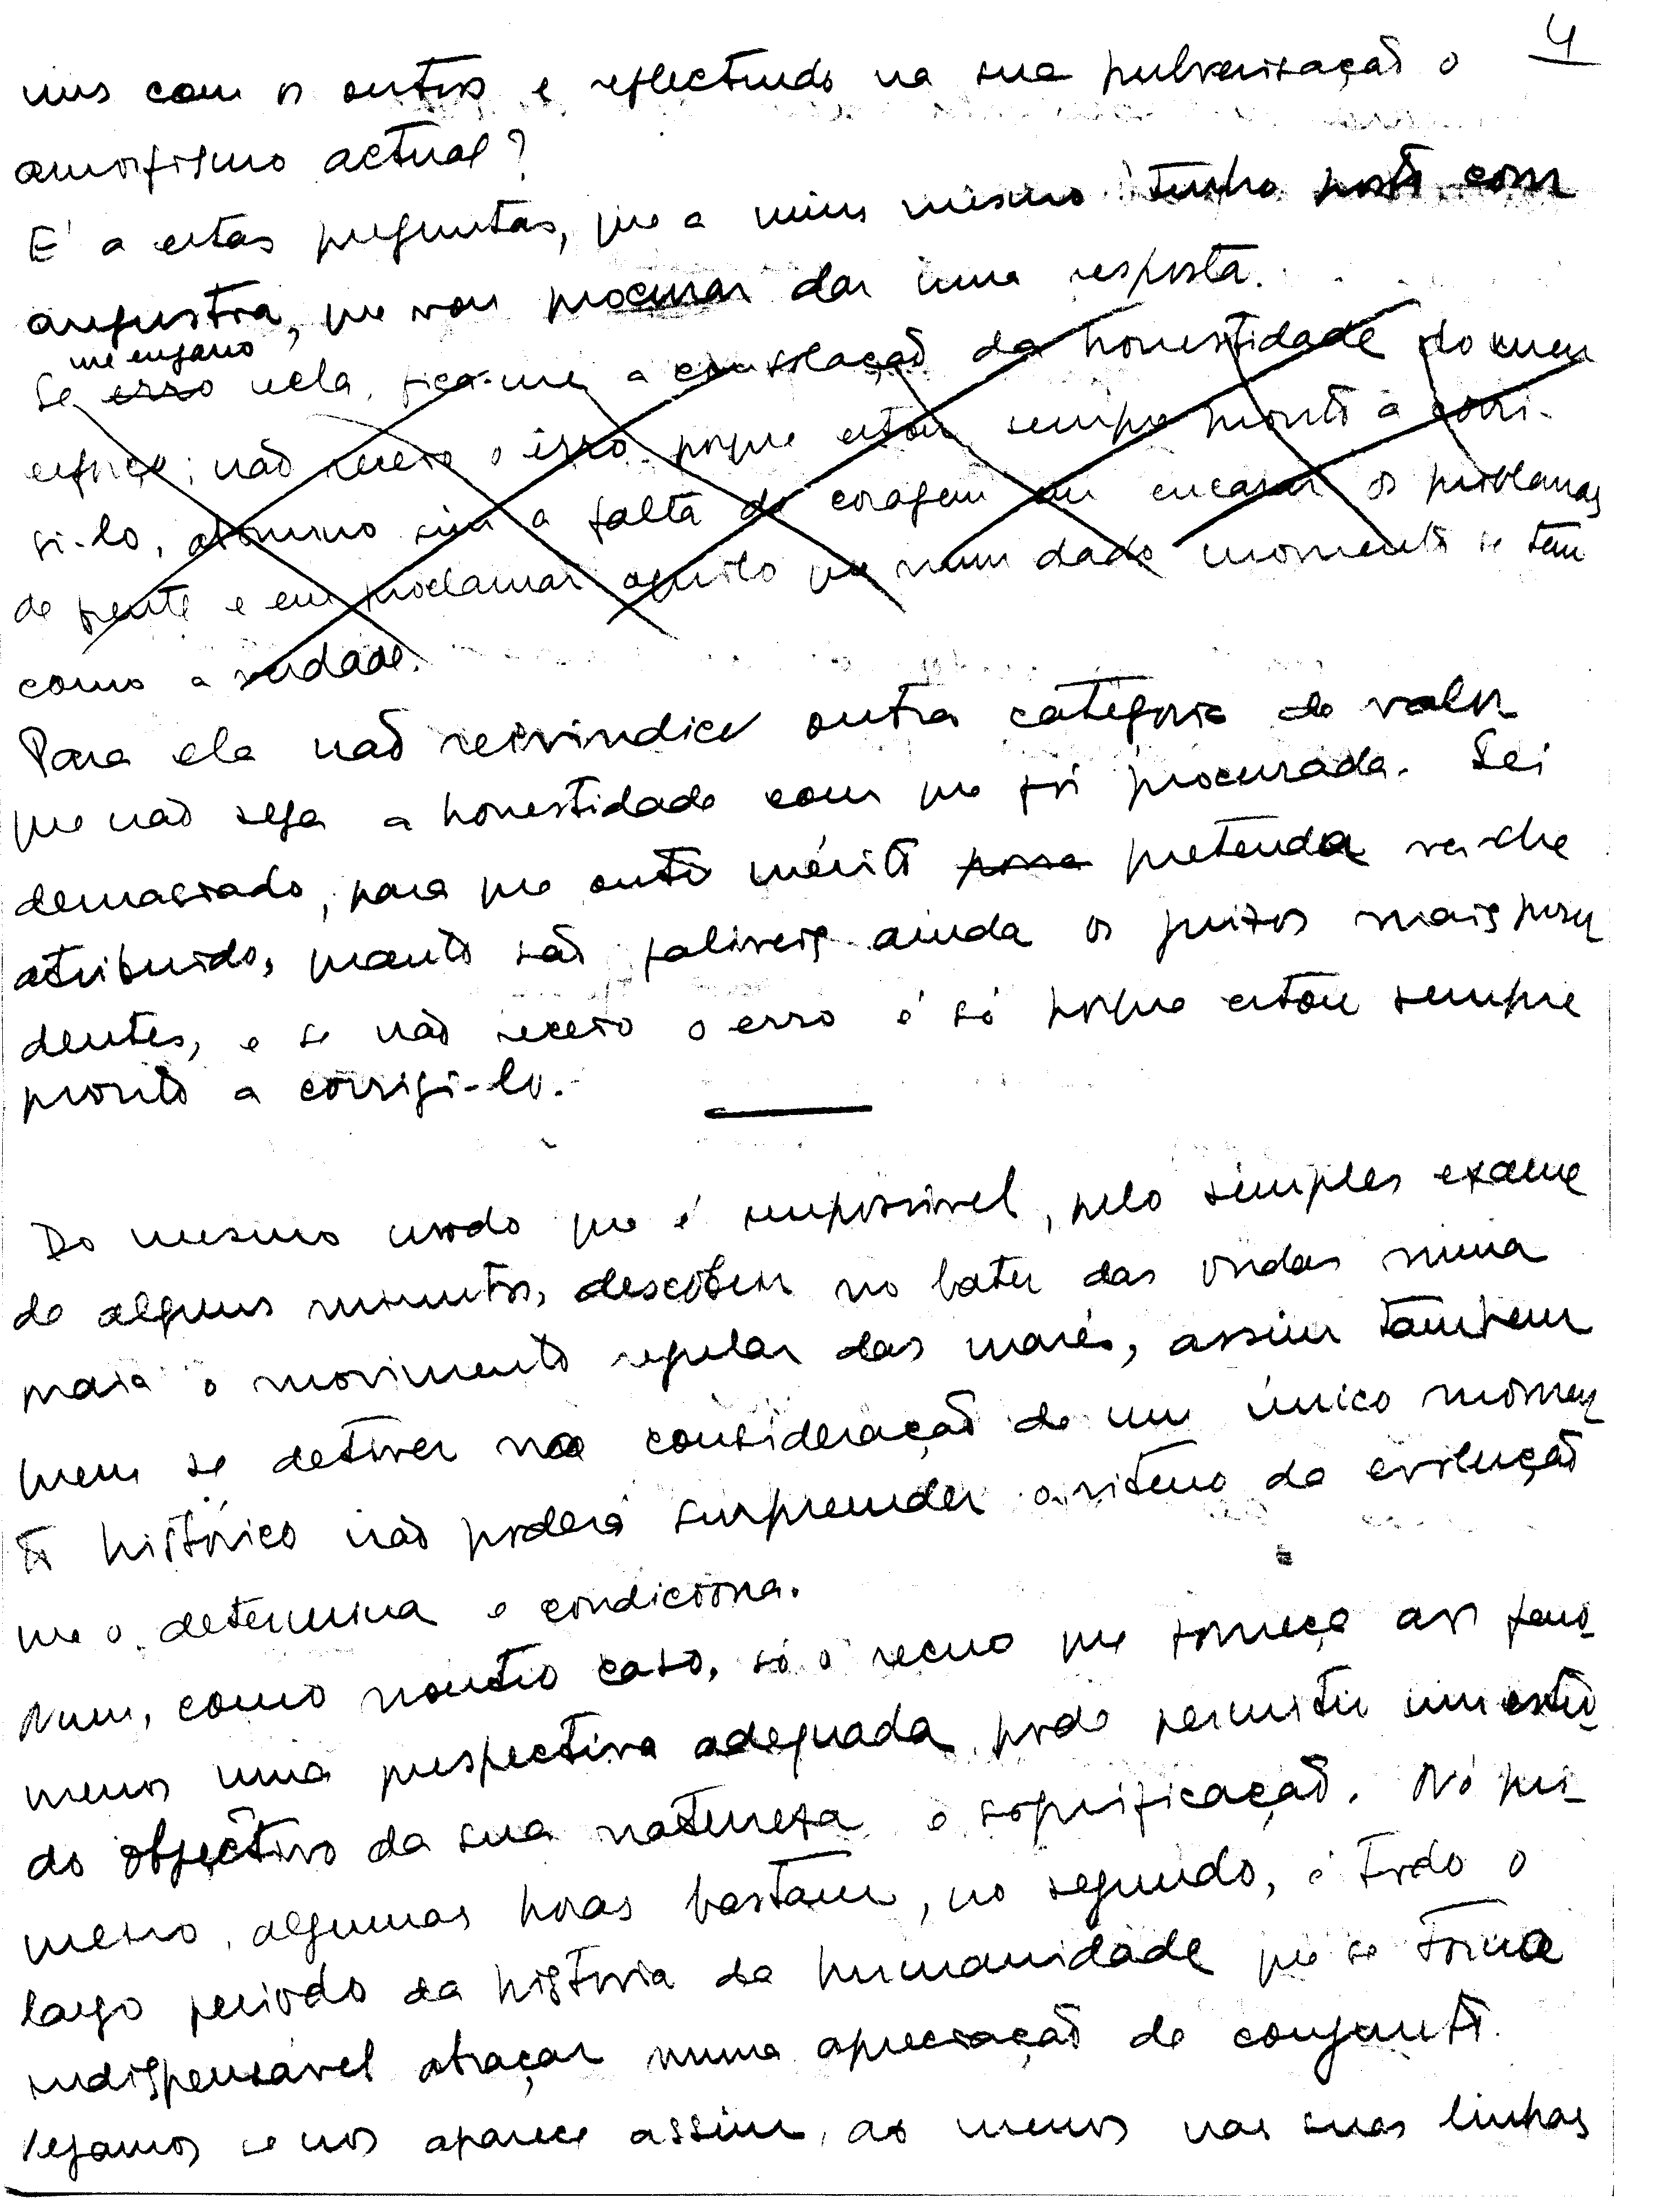 4
uns com os outros e reflectindo na sua pulverização o
amorfismo actual?
E' a estas preguntas, que a mim mesmo tenho posto com
angustia, que vou procurar dar uma resposta.
me engano
Se erro nela, fica-me a consolação da honestidade do meu
esforço; não receio o êrro porque estou sempre pronto a corri-
gi-lo, abomino sim a falta de coragem em encarar os problemas
de frente e em proclamar aquilo que num dado momento se tem
como a verdade.
Para ela não reivindico outra categoria de valor
que não seja a honestidade com que foi procurada. Sei
demasiado, para que outro mérito possa pretenda ver-lhe
atribuido, quanto são faliveis ainda os juizos mais pru
dentes, e se não receio o erro é só porque estou sempre
pronto a corrigi-lo.
Do mesmo modo que é impossivel, pelo simples exame
de alguns minutos, descobrir no bater das ondas numa
praia o movimento regular das marés, assim tambem
quem se detiver na consideração de um único momen
to histórico não poderá surpreender o ritmo da evolução
que o determina e condiciona.
Num, como noutro caso, só o recuo que forneça aos fenó
menos uma prespectiva adequada pode permitir um estu
do objectivo da sua natureza e significação. No pri-
meiro, algumas horas bastam, no segundo, é todo o
largo periodo da história da humanidade que se torna
indispensável abraçar numa apreciação de conjunto.
Vejamos se nos aparece assim, ao menos nas suas linhas